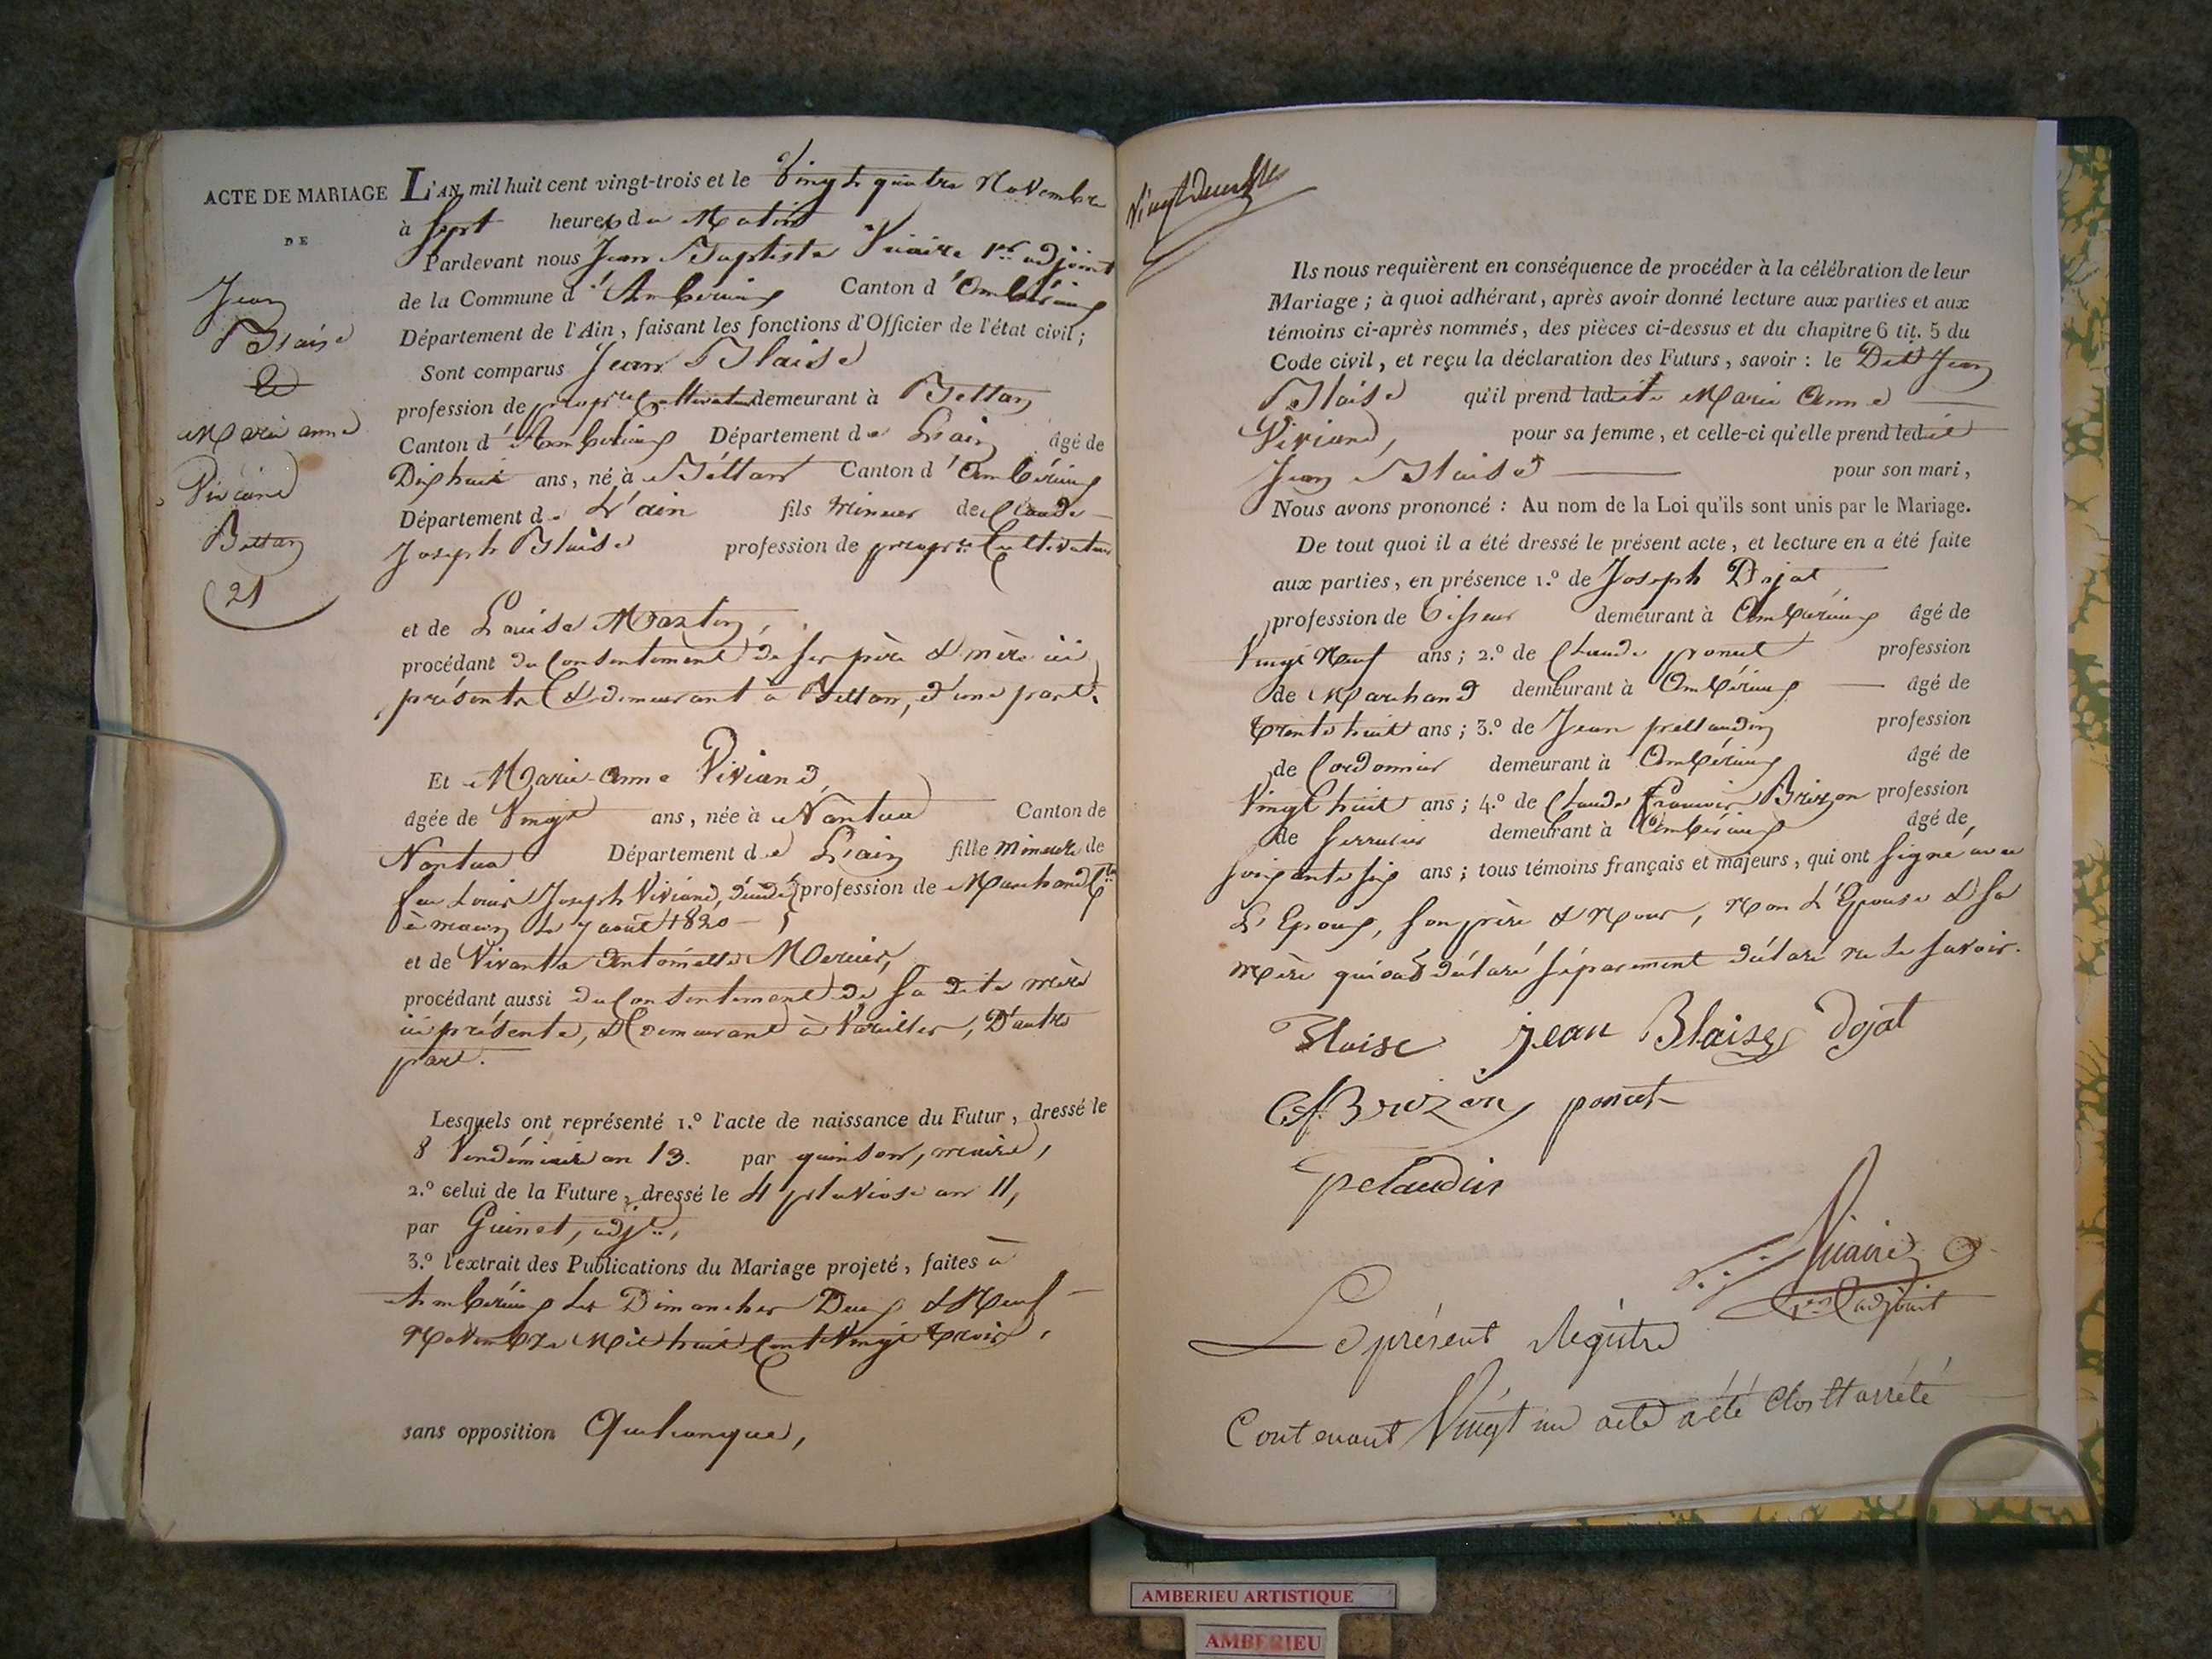 ACTE DE MARIAGE
DE
Jean
Blaise
&
Marie anne
Viviand
Bettan
21
L'AN mil huit cent vingt-trois et le Vingt quatre Novembre
à Sept heures du Matin
Pardevant nous Jean Baptiste Vicaire 1er adjoint
de la Commune d'Ambérieux Canton d'Ambérieux
Département de l'Ain, faisant les fonctions d'Officier de l'état civil;
Sont comparus Jean Blaise
profession de propre Cultivateur demeurant à Bettan
Canton d'Ambérieux Département de L'ain âgé de
Dixhuit ans, né à Béttan Canton d'Ambérieux
Département de L'ain fils Mineur de Claude
Joseph Blaise profession de propre Cultivateur
et de Louise Martin,
procédant du Consentement de ses père & mère ici
présents & demeurant à Bettan, d'une part.
Et Marie-Anne Viviand,
âgée de Vingt ans, née à Nantua Canton de
Nantua Département de L'ain fille Mineure de
feu Louis Joseph Viviand, décédé profession de Marchand
à le 7 août 1820
et de Vivante Antoinette Mercier,
procédant aussi du Consentement de Sa dite mère
ici présente, & demeurant à Vareilles, D'autre
part.
Lesquels ont représenté 1.º l'acte de naissance du Futur, dressé le
8 Vendémiaire an 13. par quinson, maire,
2.º celui de la Future, dressé le 4 pluviose an 11,
par Guinet, adjt,
3.º l'extrait des Publications du Mariage projeté, faites à
Ambérieux les Dimanches Deux & Neuf
Novembre Mil huit Cent Vingt trois,
sans opposition Quelconque,
Ils nous requièrent en conséquence de procéder à la célébration de leur
Mariage; à quoi adhérant, après avoir donné lecture aux parties et aux
témoins ci-après nommés, des pièces ci-dessus et du chapitre 6 tit. 5 du
Code civil, et reçu la déclaration des Futurs, savoir: le Dit Jean
Blaise qu'il prend ladite Marie Anne
Viviand, pour sa femme, et celle-ci qu'elle prend ledit
Jean Blaise pour son mari,
Nous avons prononcé: Au nom de la Loi qu'ils sont unis par le Mariage.
De tout quoi il a été dressé le présent acte, et lecture en a été faite
aux parties, en présence 1.º de Joseph Dojat,
profession de Tisseur demeurant à Ambérieux âgé de
Vingt Neuf ans; 2.º de Claude poncet profession
de Marchand demeurant à Ambérieux âgé de
trente huit ans; 3.º de Jean pellaudin profession
de Cordonnier demeurant à Ambérieux âgé de
Vingt huit ans; 4.º de Claude François Brizon profession
de Serrurier demeurant à Ambérieux âgé de
soixante six ans; tous témoins français et majeurs, qui ont Signé avec
L'Epoux, Son père & Nous, Non L'Epouse & Sa
Mère qui ont déclaré séparement déclaré ne le savoir.
Blaise jean Blaise dojat
C.f. Brizon poncet
pelaudin
Vicaire
1er adjoint
Le présent Régistre
Contenant Vingt un acte a été Clos et arrêté
AMBERIEU ARTISTIQUE
AMBERIEU